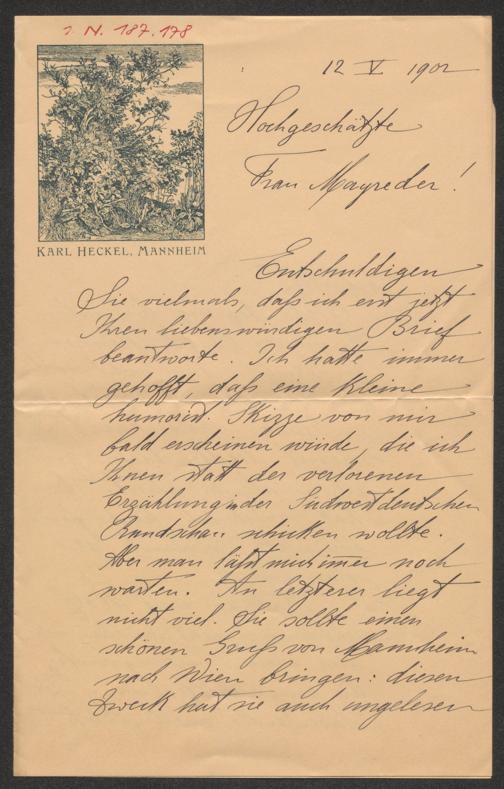 I. N. 187.178
12 V 1902
Hochgeschätzte
Frau Mayreder!
KARL HECKEL, MANNHEIM
Entschuldigen
Sie vielmals, daß ich erst jetzt
Ihren liebenswürdigen Brief
beantworte. Ich hatte immer
gehofft, daß eine kleine
humorist. Skizze von mir
bald erscheinen würde, die ich
Ihnen statt der verlorenen
Erzählung in der Südwestdeutschen
Rundschau schicken wollte.
Aber man läßt mich immer noch
warten. An letzterer liegt
nicht viel. Sie sollte einen
schönen Gruß von Mannheim
nach Wien bringen: diesen
Zweck hat sie auch ungelesen